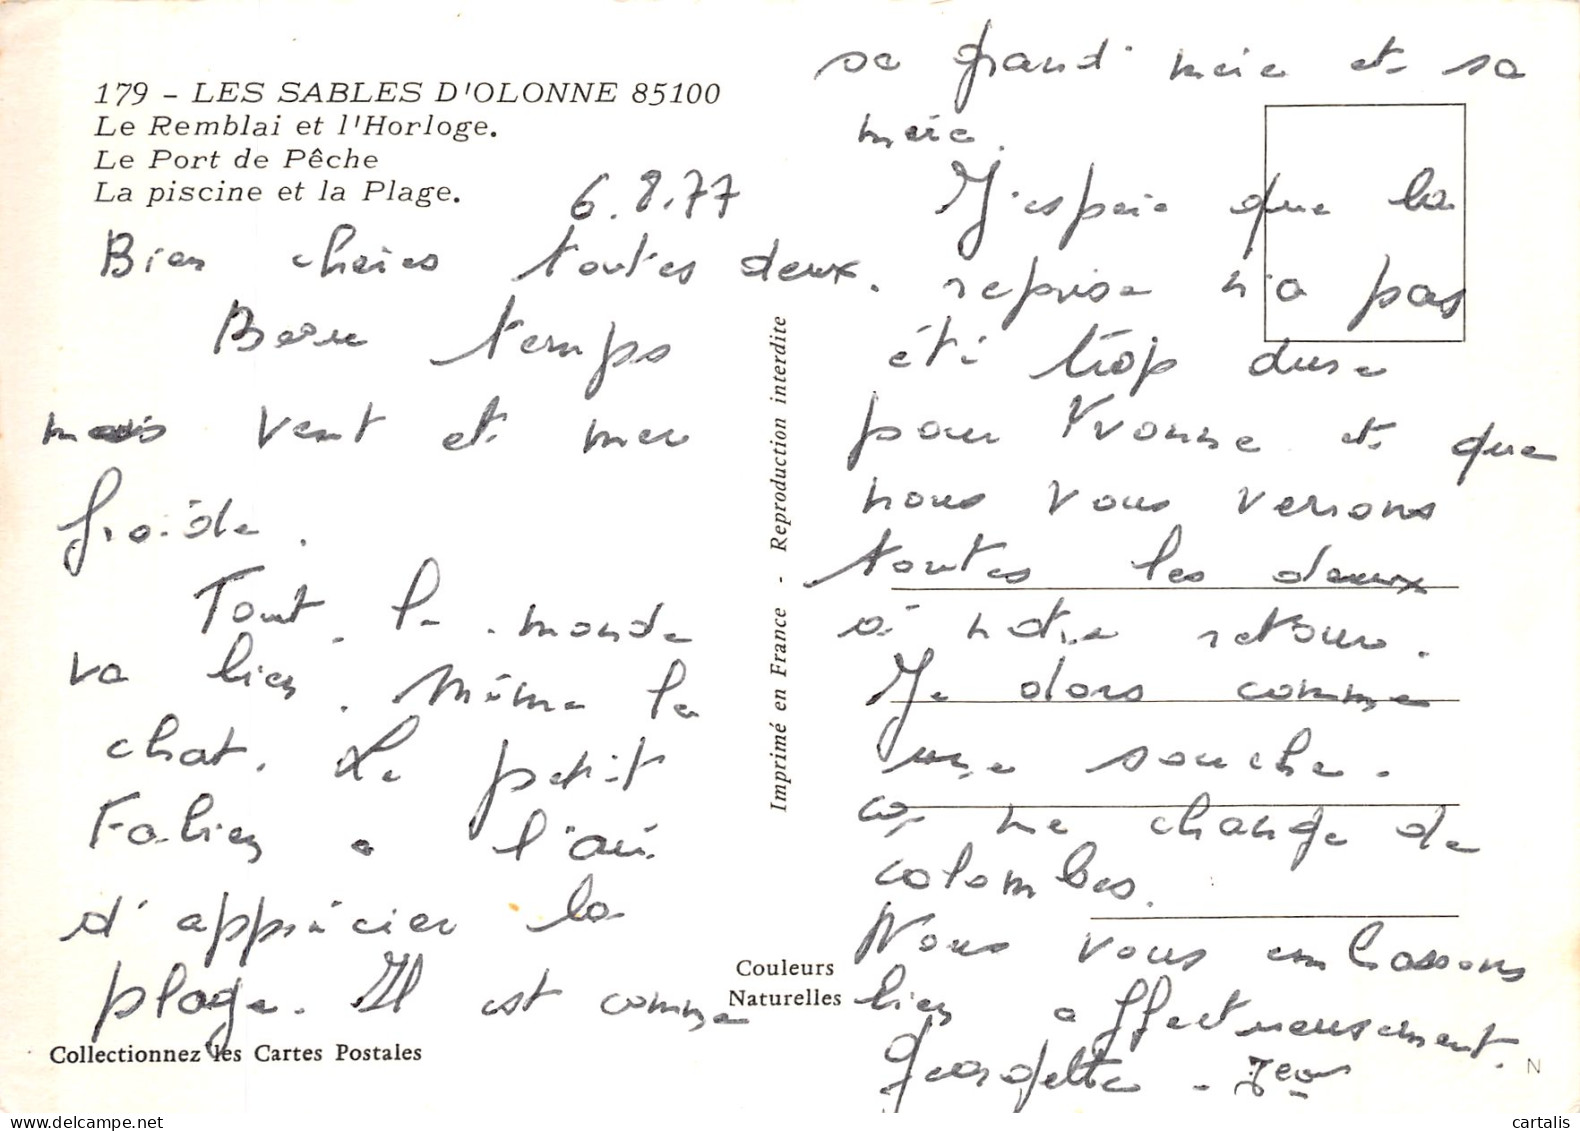 179 - LES SABLES D'OLONNE 85100
Le Remblai et l'Horloge.
Le Port de Pêche
La piscine et la Plage.
6.8.77
Bien chères toutes deux.
Beau temps
mais vent et mer
froide.
Tout le monde
va bien. Même le
chat. Le petit
Fabien a l'air
d'apprécier la
plage. Il est comme
Collectionnez les Cartes Postales
Imprimé en France - Reproduction interdite
Couleurs
Naturelles
sa grand' mère et sa
mère.
J'espère que la
reprise n'a pas
été trop dure
pour Yvonne et que
nous vous verrons
toutes les deux
à notre retour.
Je dors comme
une souche.
ça me change de
colombes.
Nous vous embrassons
bien affectueusement.
Georgette -
N
cartalis
www.delcampe.net